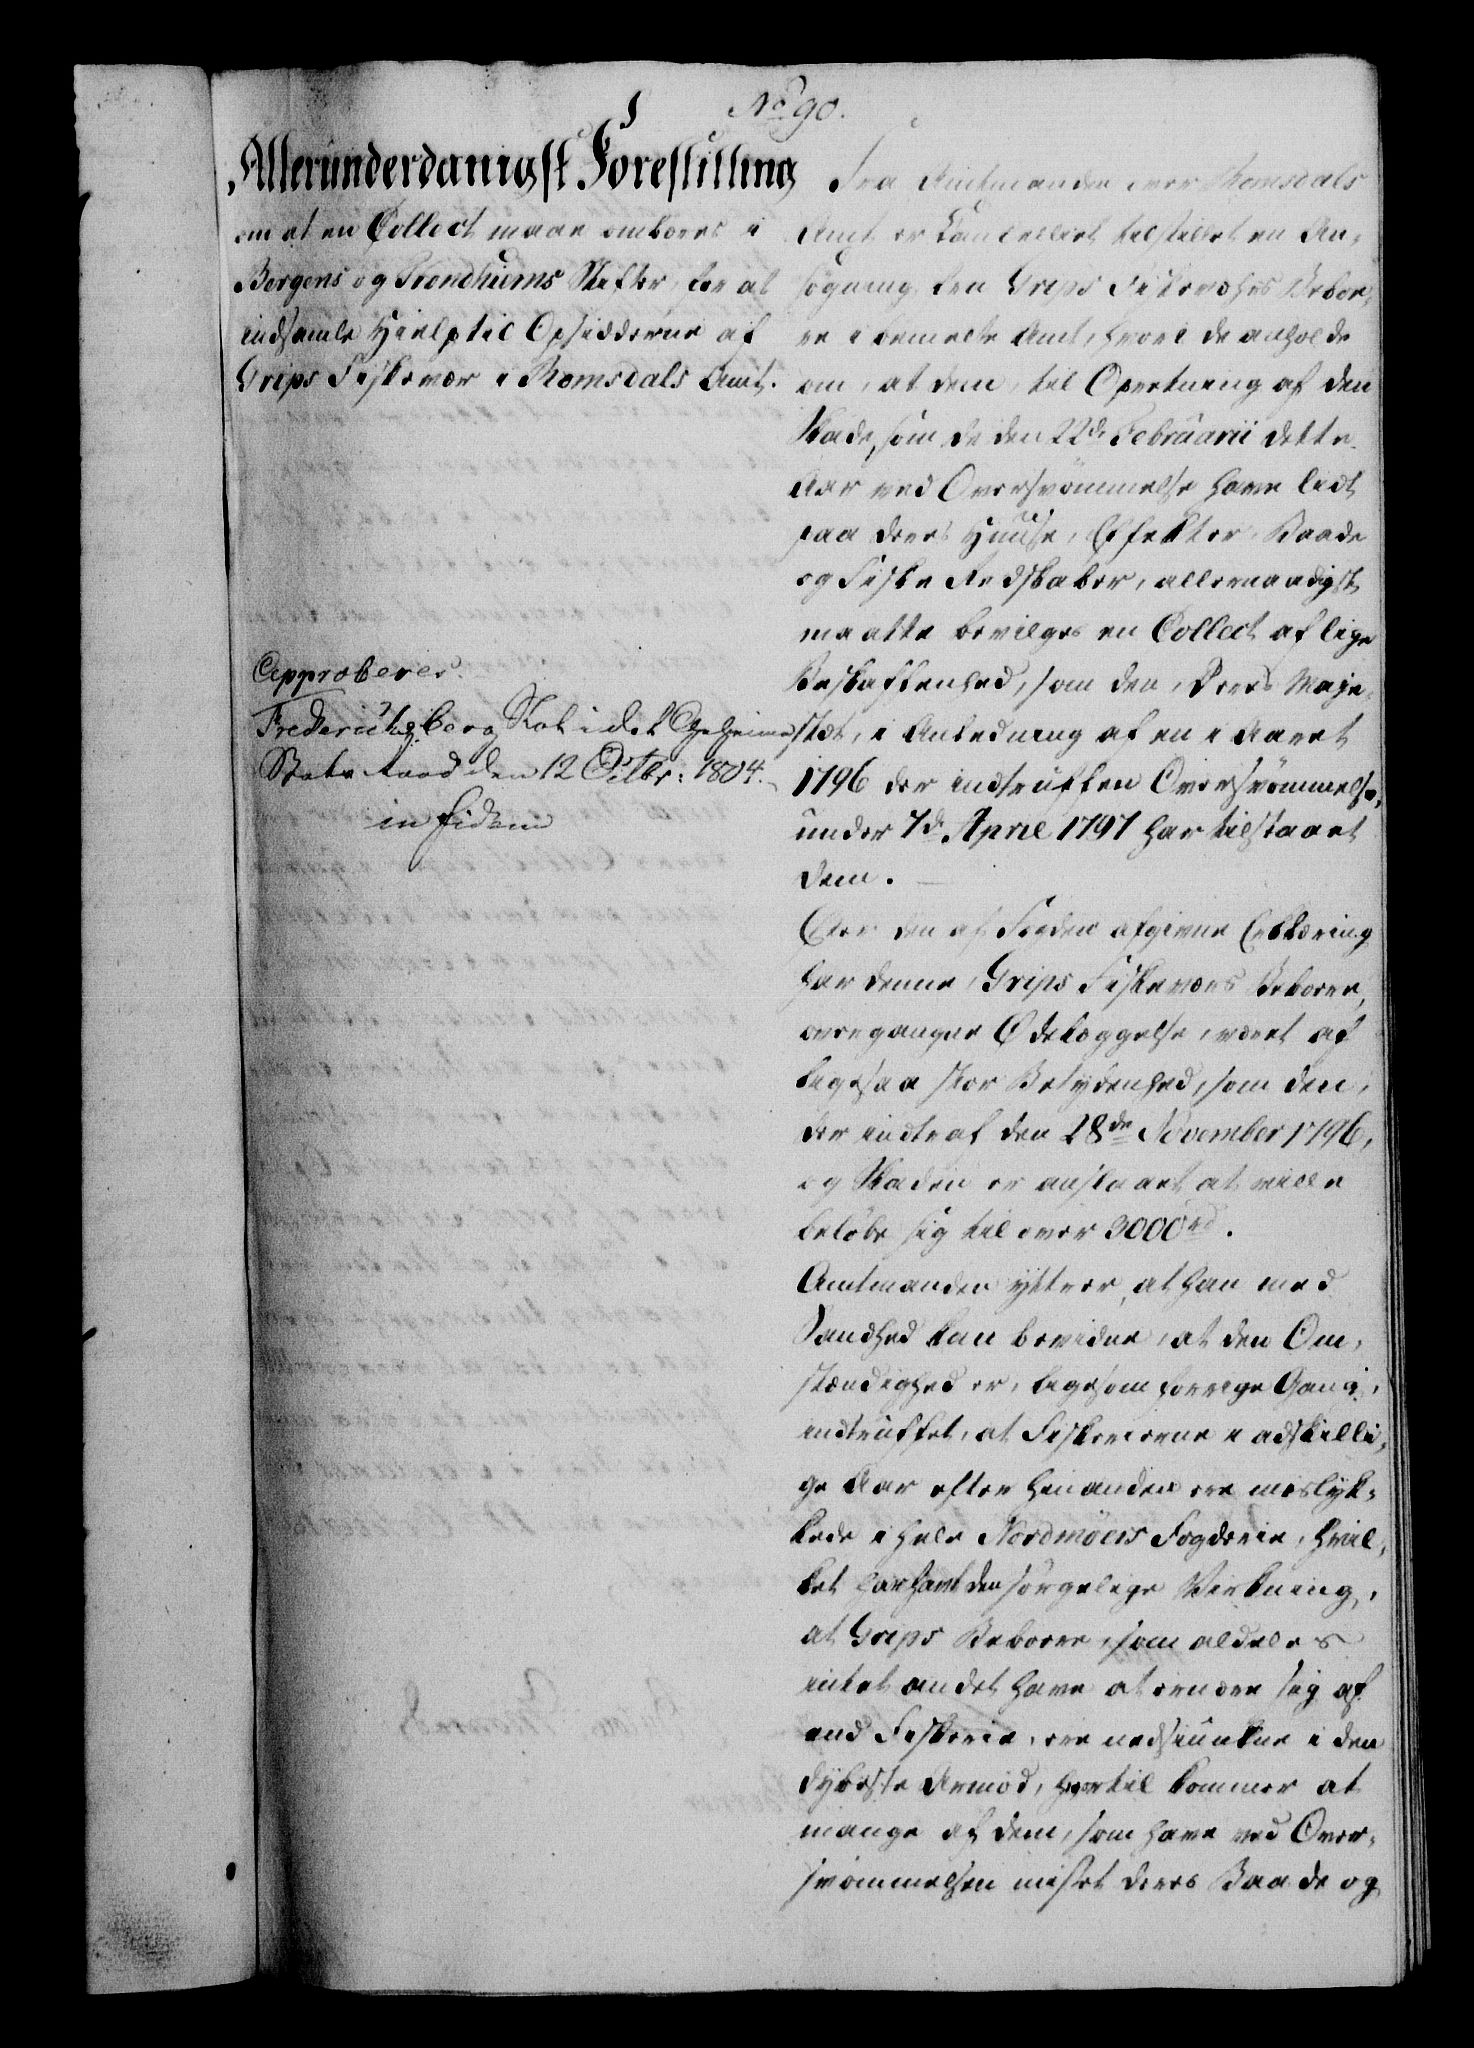 No 90.
Allerunderdanigst Forestilling
om at en Collect maae ombæres i
Bergens og Trondhiems Stifter, for at
indsamle Hielp til Opsidderne af
Grips Fiskevær i Romsdals Amt.
Approberes.
Friderichsberg Slot i det Geheime
Stats Raad den 12 Octbr: 1804.
in fidem
Fra Amtmanden over Romsdals
Amt er Cancelliet tilstillet en An-
søgning fra Grips Fiskeværs Beboe-
re i bemelte Amt, hvori de anholde
om, at dem, til Opretning af den
Skade, som de den 22de Februarii dette
Aar ved Oversvømmelse have lidt
paa deres Huuse, Effekter, Baade
og Fiske Redskaber, allernaadigst
maatte bevilges en Collect af lige
Beskaffenhed, som den, Deres Maje-
stæt, i Anledning af en i Aaret
1796 der indtruffen Oversvømmelse,
under 7de April 1797 har tilstaaet
dem.
Efter den af Fogden afgivne Erklæring
har denne, Grips Fiskeværs Beboere,
overgangne Ødelæggelse, været af
ligesaa stor Betydenhed, som den,
der indtraf den 28de November 1796,
og Skaden er anslaaet at ville
beløbe sig til over 3000 rd.
Amtmanden yttrer, at han med
Sandhed kan bevidne, at den Om-
stændighed er, ligesom forrige Gang,
indtruffet, at Fiskerierne i adskilli-
ge Aar efter hinanden ere mislyk-
kede i hele Nordmöers Fogderie, hvil-
ket har havt den sørgelige Virkning,
at Grips Beboere, som aldeles
intet andet have at ernære sig af
end Fiskerie, ere nedsiunkne i den
dybeste Armod, hertil kommer at
mange af dem, som have ved Over-
svømmelsen mistet deres Baade og